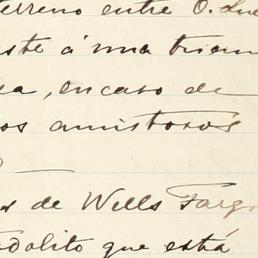 terreno entre O. Lu
este á una
a, en caso de
os amistosos
s de Wells Fargo
dolito que está